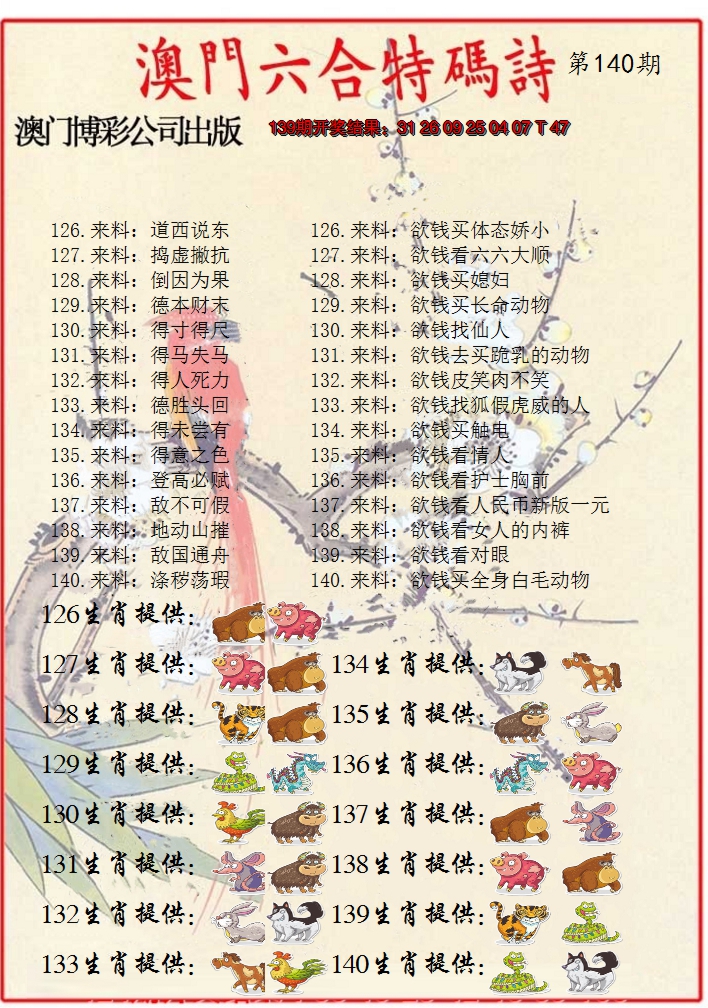 澳門六合特碼詩 第140期
澳门博彩公司出版 139期开奖结果：31 26 09 25 04 07 T 47
126.来料：道西说东 126.来料：欲钱买体态娇小
127.来料：捣虚撇抗 127.来料：欲钱看六六大顺
128.来料：倒因为果 128.来料：欲钱买媳妇
129.来料：德本财末 129.来料：欲钱买长命动物
130.来料：得寸得尺 130.来料：欲钱找仙人
131.来料：得马失马 131.来料：欲钱去买跪乳的动物
132.来料：得人死力 132.来料：欲钱皮笑肉不笑
133.来料：德胜头回 133.来料：欲钱找狐假虎威的人
134.来料：得未尝有 134.来料：欲钱买触电
135.来料：得意之色 135.来料：欲钱看情人
136.来料：登高必赋 136.来料：欲钱看护士胸前
137.来料：敌不可假 137.来料：欲钱看人民币新版一元
138.来料：地动山摧 138.来料：欲钱看女人的内裤
139.来料：敌国通舟 139.来料：欲钱看对眼
140.来料：涤秽荡瑕 140.来料：欲钱买全身白毛动物
126生肖提供：
127生肖提供： 134生肖提供：
128生肖提供： 135生肖提供：
129生肖提供： 136生肖提供：
130生肖提供： 137生肖提供：
131生肖提供： 138生肖提供：
132生肖提供： 139生肖提供：
133生肖提供： 140生肖提供：